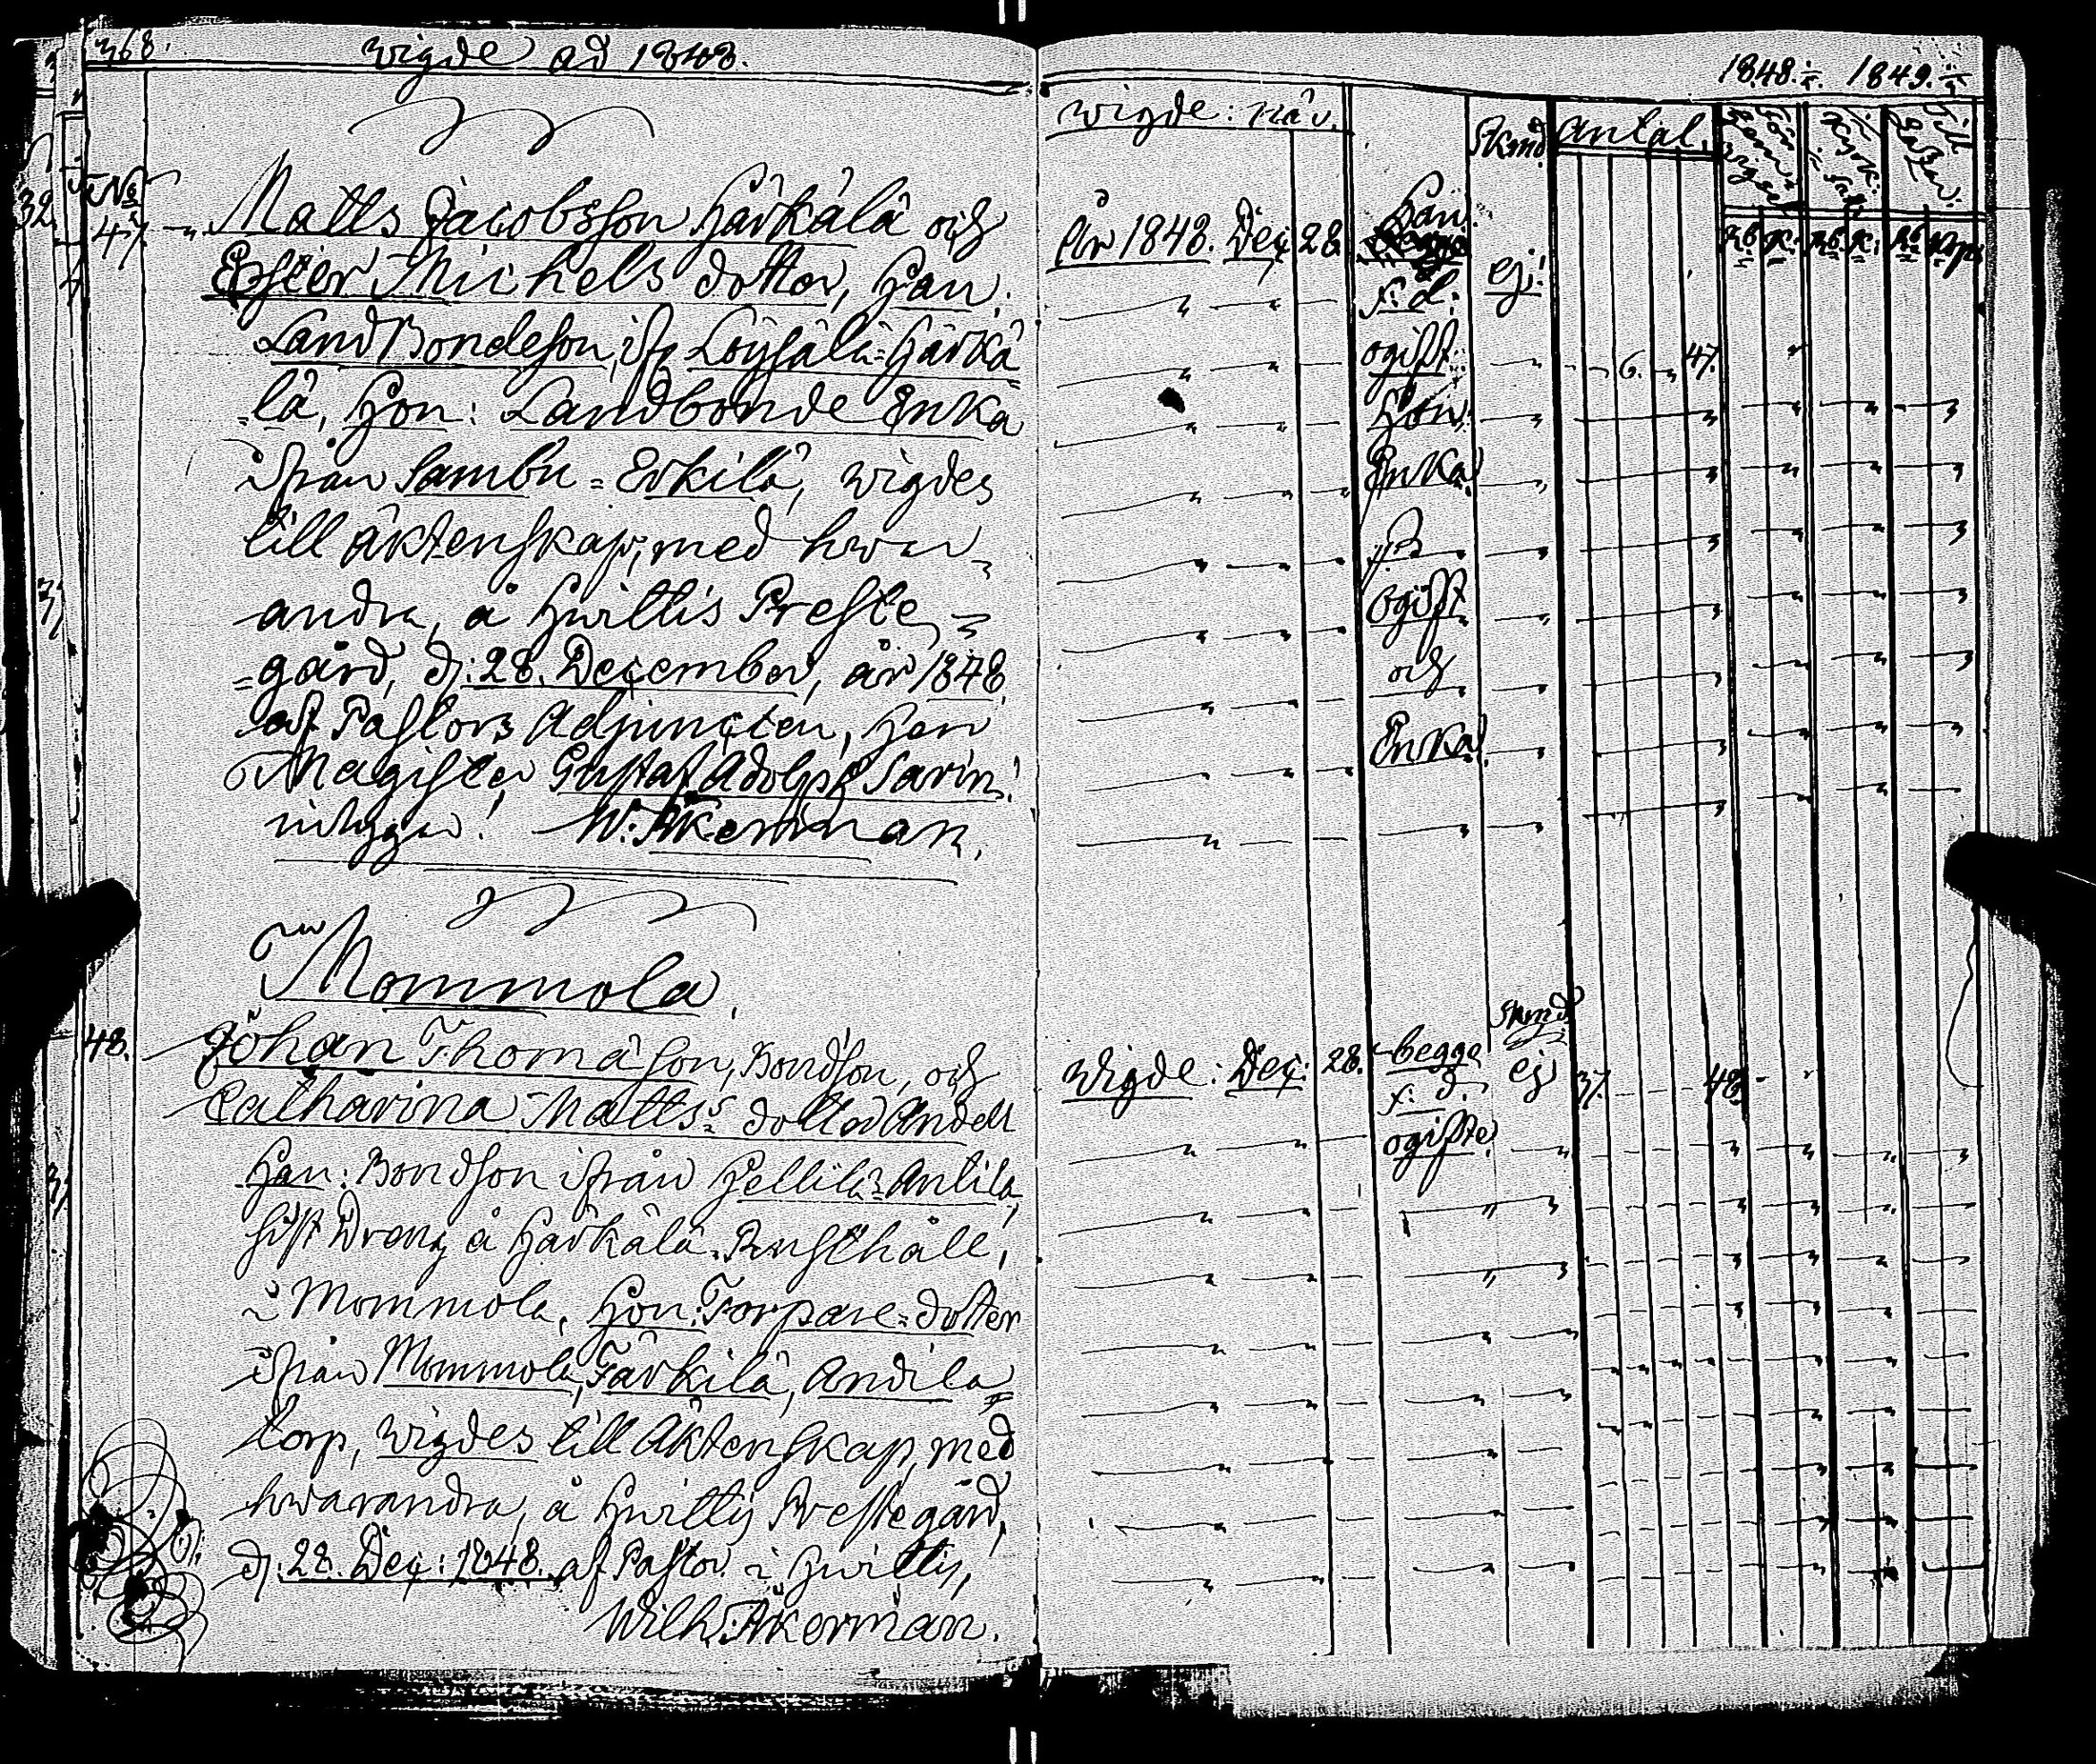 368.
wigde åd 1848.
No
47.
Matts Jacobsson Härkälä och
Ester Michels dotter, Han:
LandBondeson, ifr Löysälä-Härkä
=lä, Hon: Landbonde Enka
ifrån Sambu=Erkilä, wigdes
till Äktenskap, med hwar
andra, å Hwittis Preste
=gård, d: 28. December, år 1848,
af Pastors Adjuncten, Herr
Magister Gustaf Adolph Savin!
intygar! W. Åkerman.
Mommola.
48.
Johan Thomasson, Bondson, och
Catharina Matts=dotter Andell
Han: Bondson ifrån Hellilä=Antila
Dreng å Härkälä Rusthåll,
i Mommola, Hon: Torpare=dotter
ifrån Mommola, Tärkilä, Andila
torp, wigdes till Äktenskap, med
hwarandra, å Hwittis Prestegård,
d: 28. Dec: 1848. af Pastor i Hwittis,
Wilh. Åkerman.
1848. 1849.
wigde: när.
Skmd
antal.
År 1848. Dec 28.
Han:
f. d.
ogift:
Hon:
Enka
ogift
och
Enka
ej!
6. 47.
Wigde: Dec: 28.
begge
f. d.
ogifte
Skmd
ej
37. 48.